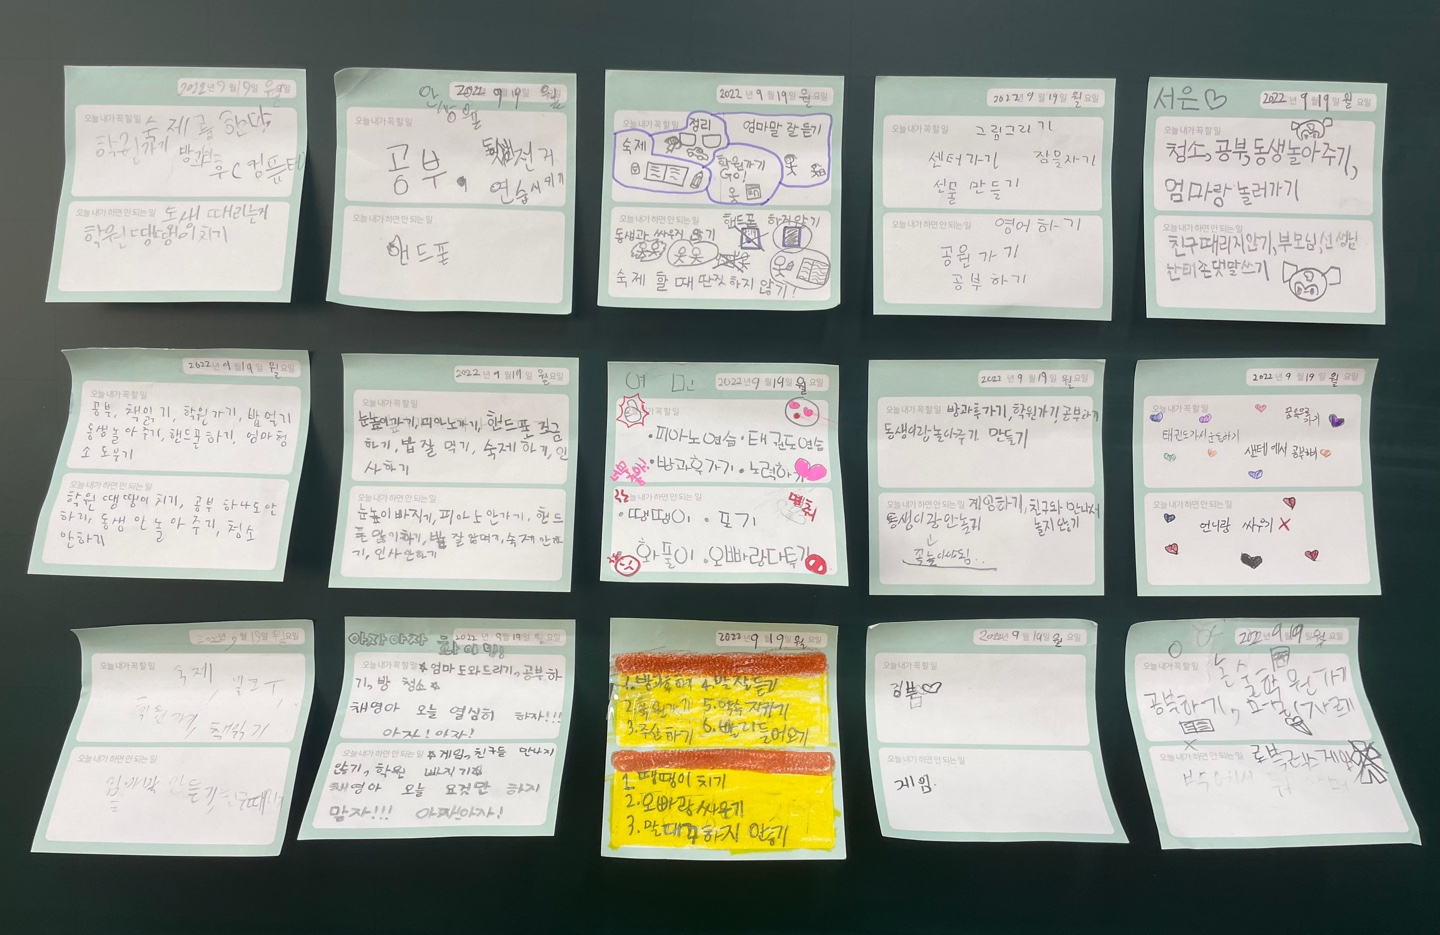 2022년 9월 19일 월요일
오늘 내가 꼭 할 일
숙제를 한다
학원가기 방과후 (컴퓨터
오늘 내가 하면 안 되는 일 동생 때리는거
학원 땡땡이치기
2022 9 19 월
오늘 내가 꼭 할 일
공부. 자전거
연습시키기
오늘 내가 하면 안 되는 일
핸드폰
2022년 9월 19일 월요일
오늘 내가 꼭 할 일
정리 엄마말 잘 듣기
숙제 학원가기
GO!
오늘 내가 하면 안 되는 일 핸드폰 하지 않기
동생과 싸우지 않기
숙제 할 때 딴짓 하지 않기!
2022년 9월 19일 월요일
오늘 내가 꼭 할 일
그림그리기
센터가기 짐물자기
선물 만들기
오늘 내가 하면 안 되는 일 영어하기
공원가기
공부하기
서은♡ 2022년 9월 19일 월요일
오늘 내가 꼭 할 일
청소, 공부, 동생놀아주기,
엄마랑 놀러가기
오늘 내가 하면 안 되는 일
친구때리지않기, 부모님, 선생님
난테존댓말쓰기
2022년 9월 19일 월요일
오늘 내가 꼭 할 일
공부, 책읽기, 학원가기, 밥먹기
동생놀아주기, 핸드폰하기, 엄마청
소 도우기
오늘 내가 하면 안 되는 일
학원 땡땡이 치기, 공부 하나도안
하기, 동생 안놀아주기, 청소
안하기
2022년 9월 19일 월요일
오늘 내가 꼭 할 일
눈높이가기, 피아노가기, 핸드폰 조금
하기, 밥 잘 먹기, 숙제하기, 인
사하기
오늘 내가 하면 안 되는 일
눈높이빠지기, 피아노안가기, 핸드
폰 많이하기, 밥 잘 안먹기, 숙제안하
기, 인사안하기
2022년 9월 19일 월요일
꼭 할 일
·피아노연습 ·태권도연습
·방과후가기 ·노력하기
오늘 내가 하면 안 되는 일 멈춰
·땡땡이 ·포기
·화풀이 ·오빠랑다투기
2022년 9월 19일 월요일
오늘 내가 꼭 할 일 방과후가기, 학원가기, 공부하기
동생이랑놀아주기 만들기
오늘 내가 하면 안 되는 일 게임하기, 친구와 만나서
동생이랑안놀기 놀지않기
꼭놀아야됨..
2022년 9월 19일 월요일
오늘 내가 꼭 할 일
공부하기
태권도가서운동하기
센터에서 공부하기
오늘 내가 하면 안 되는 일
언니랑 싸우기 X
오늘 내가 꼭 할 일
숙제
학원가기 책읽기
오늘 내가 하면 안 되는 일
아자아자 화이팅 2022년 9월 19일 월요일
오늘 내가 꼭 할 일 ☆엄마도와드리기, 공부하
기, 방 청소☆
채영아 오늘 열심히 하자!!!
아자!아자!
오늘 내가 하면 안 되는 일 ☆게임, 친구들 만나지
않기, 학원 빠지기
채영아 오늘 요것만 하지
말자!!! 아자!아자!
2022년 9월 19일 월요일
1. 방과후하기 4. 말잘듣기
2. 학원가기 5. 약속지키기
3. 주산하기 6. 빨리들어오기
1. 땡땡이치기
2. 오빠랑싸우기
3. 말대꾸하지 않기
2022년 9월 19일 월요일
오늘 내가 꼭 할 일
공부♡
오늘 내가 하면 안 되는 일
게임.
2022년 9월 19일 월요일
오늘 내가 꼭 할 일
학원가기
공부하기,
오늘 내가 하면 안 되는 일 로블록스게임